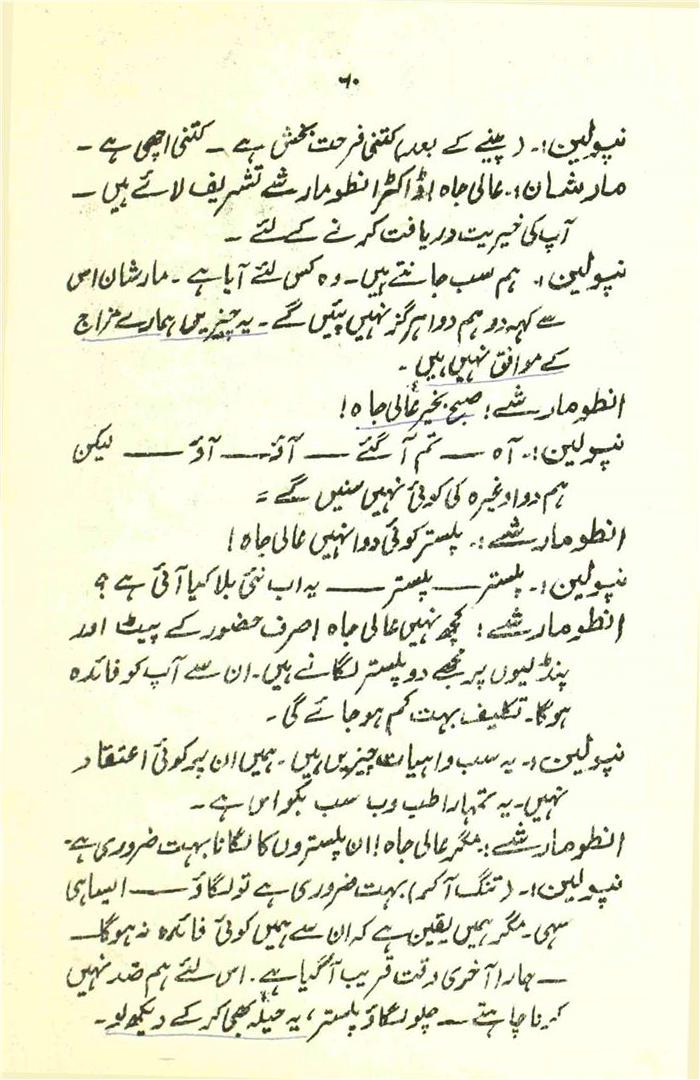 ۶۰
نپولین:۔ (پینے کے بعد) کتنی فرحت بخش ہے ۔ کتنی اچھی ہے ۔
مارشان:۔ عالی جاہ! ڈاکٹر انطومارشے تشریف لائے ہیں ۔
آپ کی خیریت دریافت کرنے کے لئے ۔
نپولین:۔ ہم سب جانتے ہیں۔ وہ کس لئے آیا ہے ۔ مارشان اس
سے کہہ دو ہم دوا ہرگز نہیں پئیں گے ۔ یہ چیزیں ہمارے مزاج
کے موافق نہیں ہیں ۔
انطومارشے:۔ صبح بخیر عالی جاہ!
نپولین:۔ آہ — تم آ گئے — آؤ — آؤ — لیکن
ہم دوا وغیرہ کی کوئی نہیں سنیں گے =
انطومارشے:۔ پلستر کوئی دوا نہیں عالی جاہ!
نپولین:۔ پلستر — پلستر — یہ اب نئی بلا کیا آئی ہے ؟
انطومارشے:۔ کچھ نہیں عالی جاہ! صرف حضور کے پیٹ اور
پنڈلیوں پر مجھے دو پلستر لگانے ہیں۔ ان سے آپ کو فائدہ
ہوگا۔ تکلیف بہت کم ہو جائے گی ۔
نپولین:۔ یہ سب واہیات چیزیں ہیں ۔ ہمیں ان پر کوئی اعتقاد
نہیں۔ یہ تمہارا طب وب سب بکواس ہے ۔
انطومارشے:۔ مگر عالی جاہ! ان پلستروں کا لگانا بہت ضروری ہے۔
نپولین:۔ (تنگ آ کر) بہت ضروری ہے تو لگاؤ — ایسا ہی
سہی۔ مگر ہمیں یقین ہے کہ ان سے ہمیں کوئی فائدہ نہ ہوگا —
— ہمارا آخری وقت قریب آ گیا ہے ۔ اس لئے ہم ضد نہیں
کرنا چاہتے — چلو لگاؤ پلستر، یہ حیلہ بھی کر کے دیکھ لو ۔